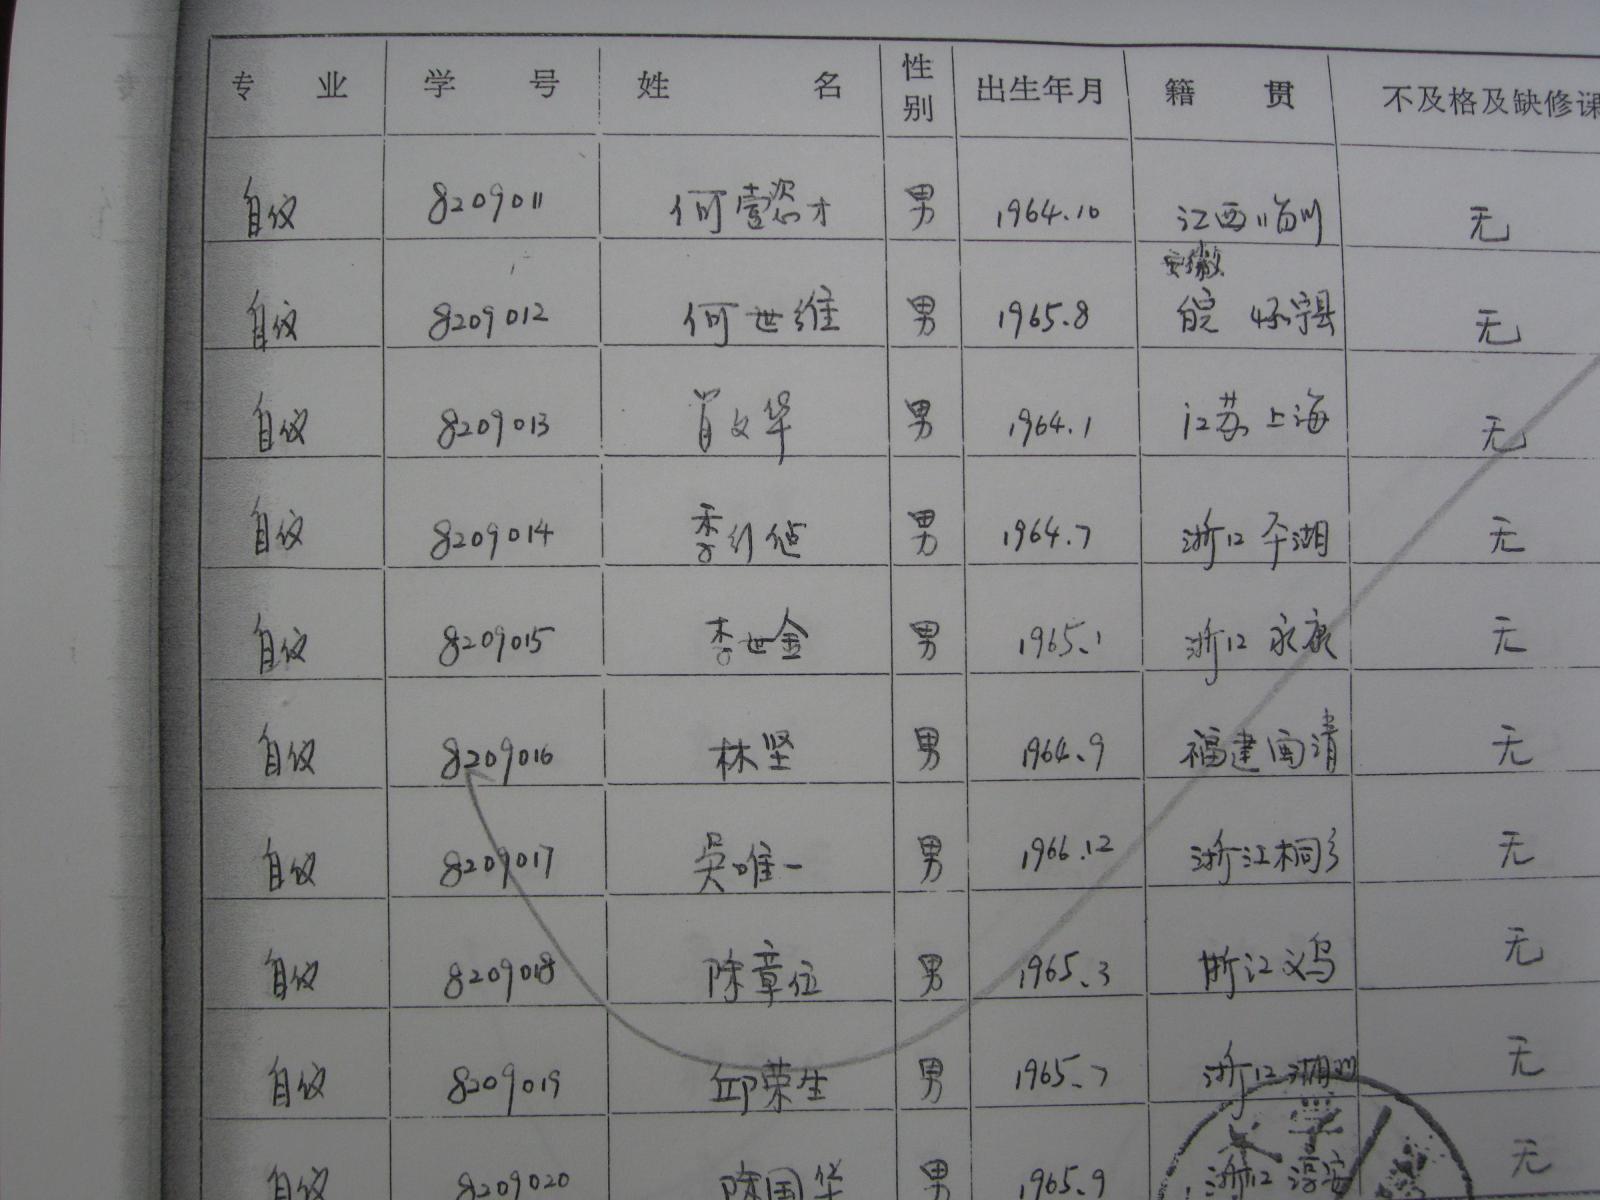 专 业 学 号 姓 名 性别 出生年月 籍 贯 不及格及缺修课
自仪 8209011 何壹 才 男 1964.10 江西临川 无
安徽
自仪 8209012 何世维 男 1965.8 皖 怀宁县 无
自仪 8209013 肖文华 男 1964.1 江苏上海 无
自仪 8209014 李 男 1964.7 浙江平湖 无
自仪 8209015 李世金 男 1965.1 浙江永康 无
自仪 8209016 林坚 男 1964.9 福建闽清 无
自仪 8209017 吴唯一 男 1966.12 浙江桐乡 无
自仪 8209018 陈章位 男 1965.3 浙江义乌 无
自仪 8209019 邱荣生 男 1965.7 浙江湖州 无
自仪 8209020 陈国华 男 1965.9 浙江淳安 无
大学